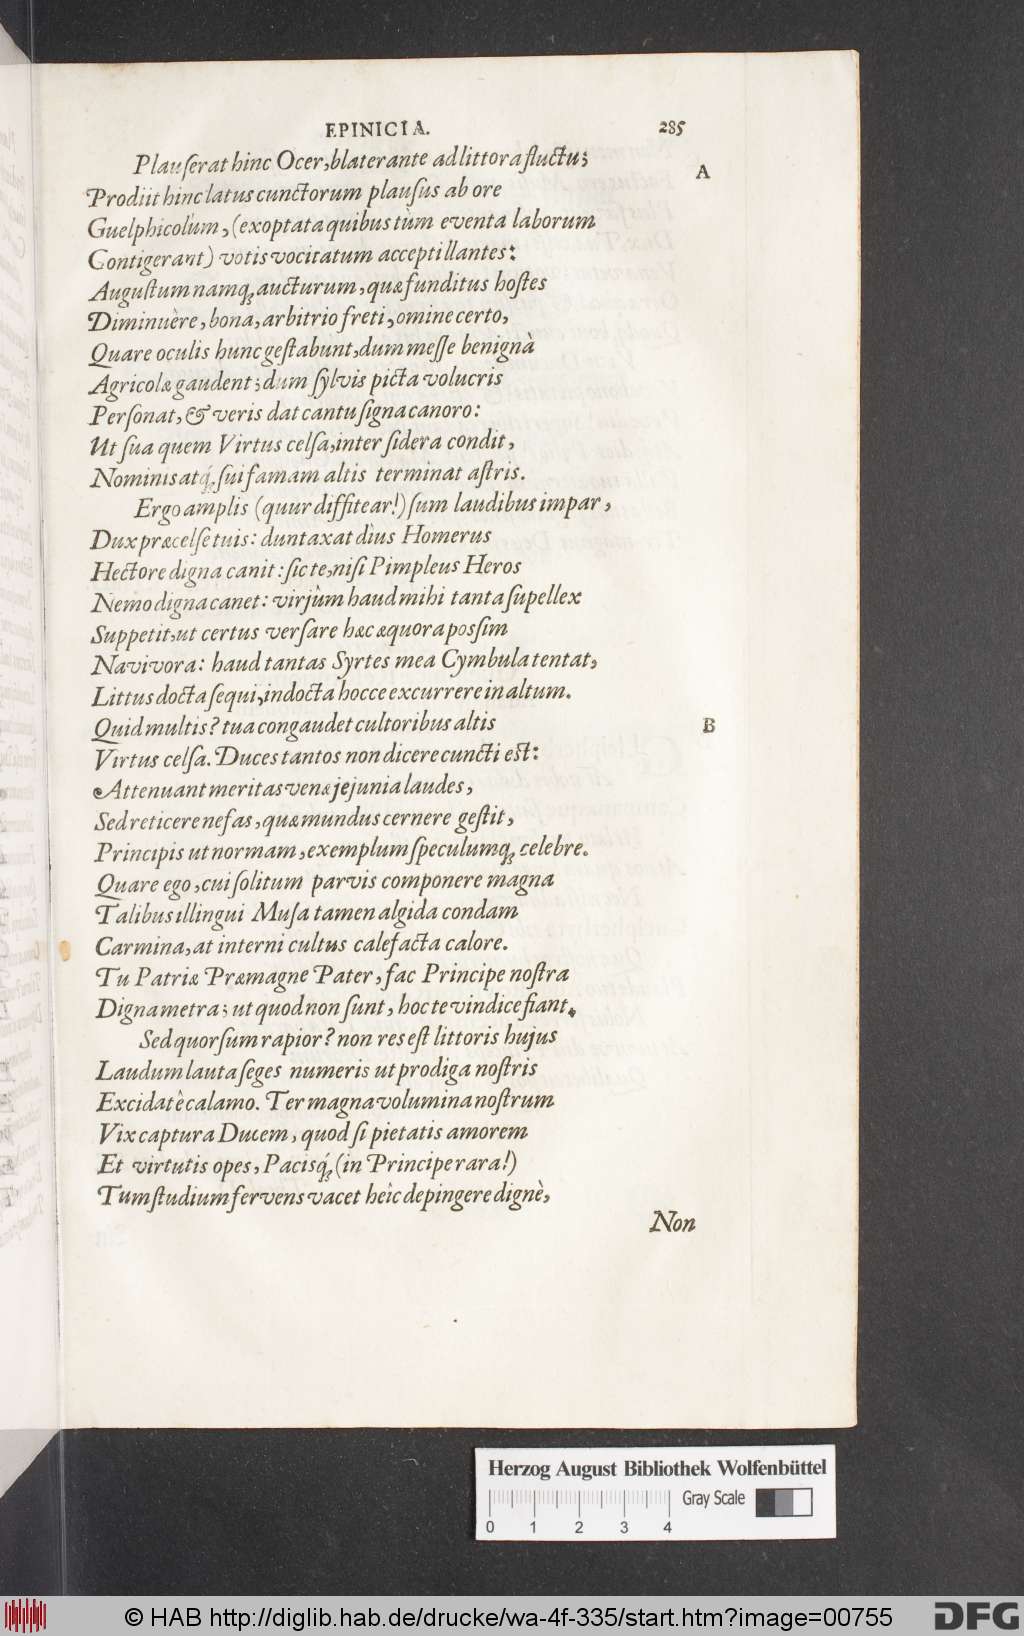 EPINICIA. 285
Plauserat hinc Ocer, blaterante ad littora fluctu;
A
Prodiit hinc latus cunctorum plausus ab ore
Guelphicolûm, (exoptata quibus tùm eventa laborum
Contigerant) votis vocitatum acceptillantes:
Augustum namq; aucturum, quæ funditus hostes
Diminuère, bona, arbitrio freti, omine certo,
Quare oculis hunc gestabunt, dum messe benignâ
Agricolæ gaudent; dum sylvis picta volucris
Personat, & veris dat cantu signa canoro:
Ut sua quem Virtus celsa, inter sidera condit,
Nominis atq́; sui famam altis terminat astris.
Ergo amplis (quur diffitear!) sum laudibus impar,
Dux præcelse tuis: duntaxat dius Homerus
Hectore digna canit: sic te, nisi Pimpleus Heros
Nemo digna canet: virjûm haud mihi tanta supellex
Suppetit, ut certus versare hæc æquora possim
Navivora: haud tantas Syrtes mea Cymbula tentat,
Littus docta sequi, indocta hocce excurrere in altum.
Quid multis? tua congaudet cultoribus altis
B
Virtus celsa. Duces tantos non dicere cuncti est:
Attenuant meritas venæ jejunia laudes,
Sed reticere nefas, quæ mundus cernere gestit,
Principis ut normam, exemplum speculumq; celebre.
Quare ego, cui solitum parvis componere magna
Talibus illingui Musa tamen algida condam
Carmina, at interni cultus calefacta calore.
Tu Patriæ Præmagne Pater, fac Principe nostra
Digna metra; ut quod non sunt, hoc te vindice fiant.
Sed quorsum rapior? non res est littoris hujus
Laudum lauta seges numeris ut prodiga nostris
Excidat è calamo. Ter magna volumina nostrum
Vix captura Ducem, quod si pietatis amorem
Et virtutis opes, Pacisq́; (in Principe rara!)
Tum studium fervens vacet heîc depingere dignè,
Non
Herzog August Bibliothek Wolfenbüttel
Gray Scale
0 1 2 3 4
© HAB http://diglib.hab.de/drucke/wa-4f-335/start.htm?image=00755
DFG